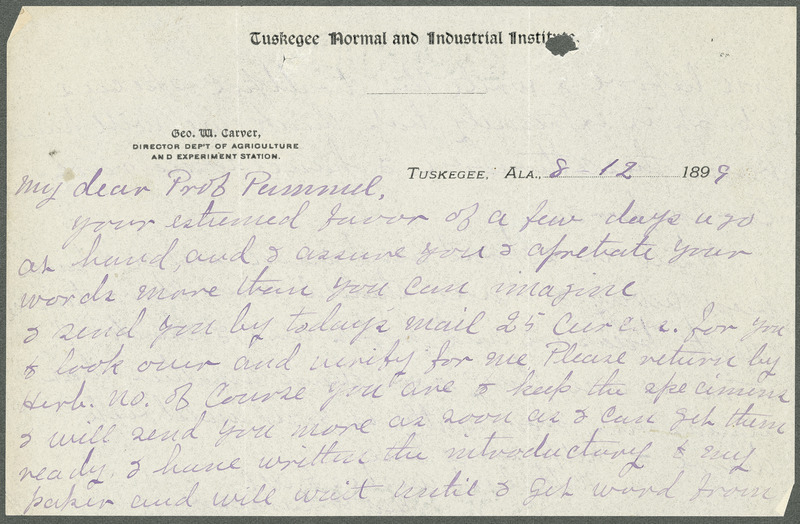 Tuskegee Normal and Industrial Institute.
Geo. W. Carver,
DIRECTOR DEP'T OF AGRICULTURE
AND EXPERIMENT STATION.
TUSKEGEE, ALA., 8-12 1899
My dear Prof Pammel,
Your estemed favor of a few days ago
at hand, and I assure you I apretiate your
words more than you can imagine
I send you by todays mail 25 for you
to look over and verify for me. Please return by
Herb. no. of Course you are to keep the specimens
I will send you more as soon as I can get them
ready. I have written the introductory to my
paper and will wait until I get word from